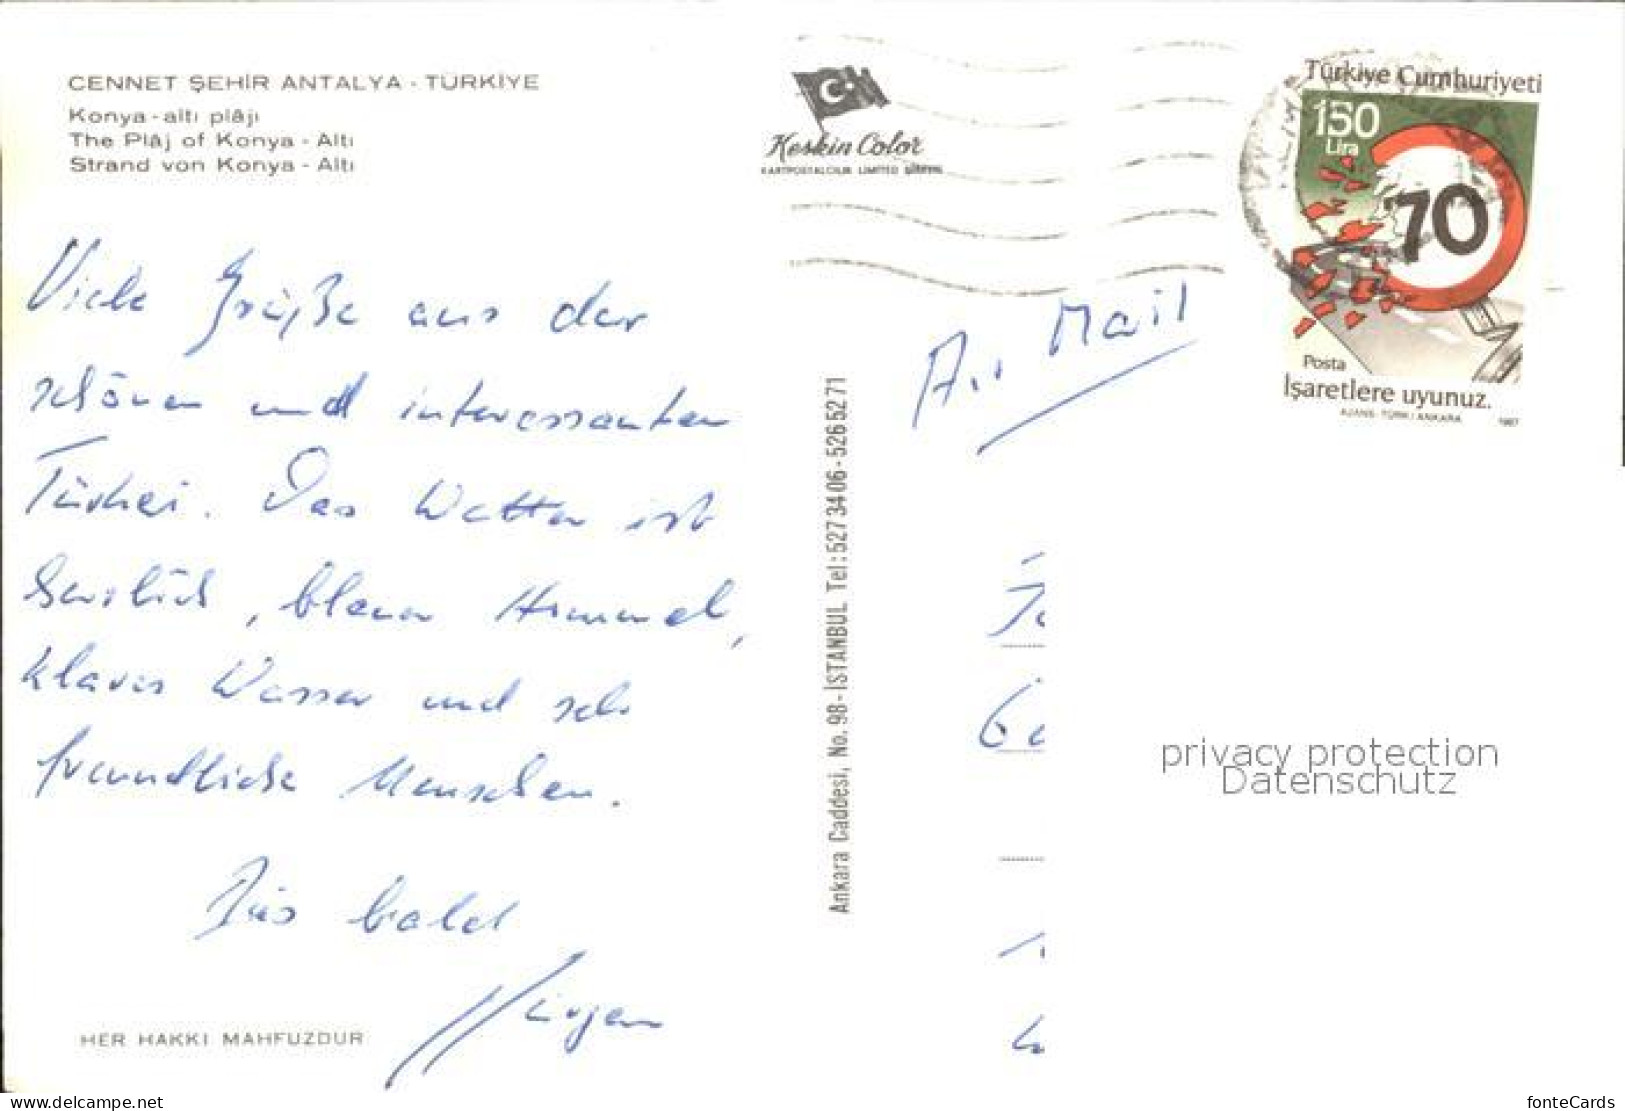 CENNET ŞEHİR ANTALYA - TÜRKİYE
Konya - altı plâjı
The Plâj of Konya - Altı
Strand von Konya - Altı
Keskin Color
KARTPOSTALCILIK LIMITED ŞİRKETİ
Türkiye Cumhuriyeti
150
Lira
70
Posta
İşaretlere uyunuz.
AJANS - TÜRK / ANKARA 1987
Air Mail
Viele Grüße aus der
schönen und interessanten
Türkei. Das Wetter ist
herrlich, blauer Himmel,
klares Wasser und sehr
freundliche Menschen.
Bis bald
Jürgen
HER HAKKI MAHFUZDUR
Ankara Caddesi, No. 98 - İSTANBUL Tel: 527 34 06 - 526 52 71
privacy protection
Datenschutz
www.delcampe.net
fonteCards